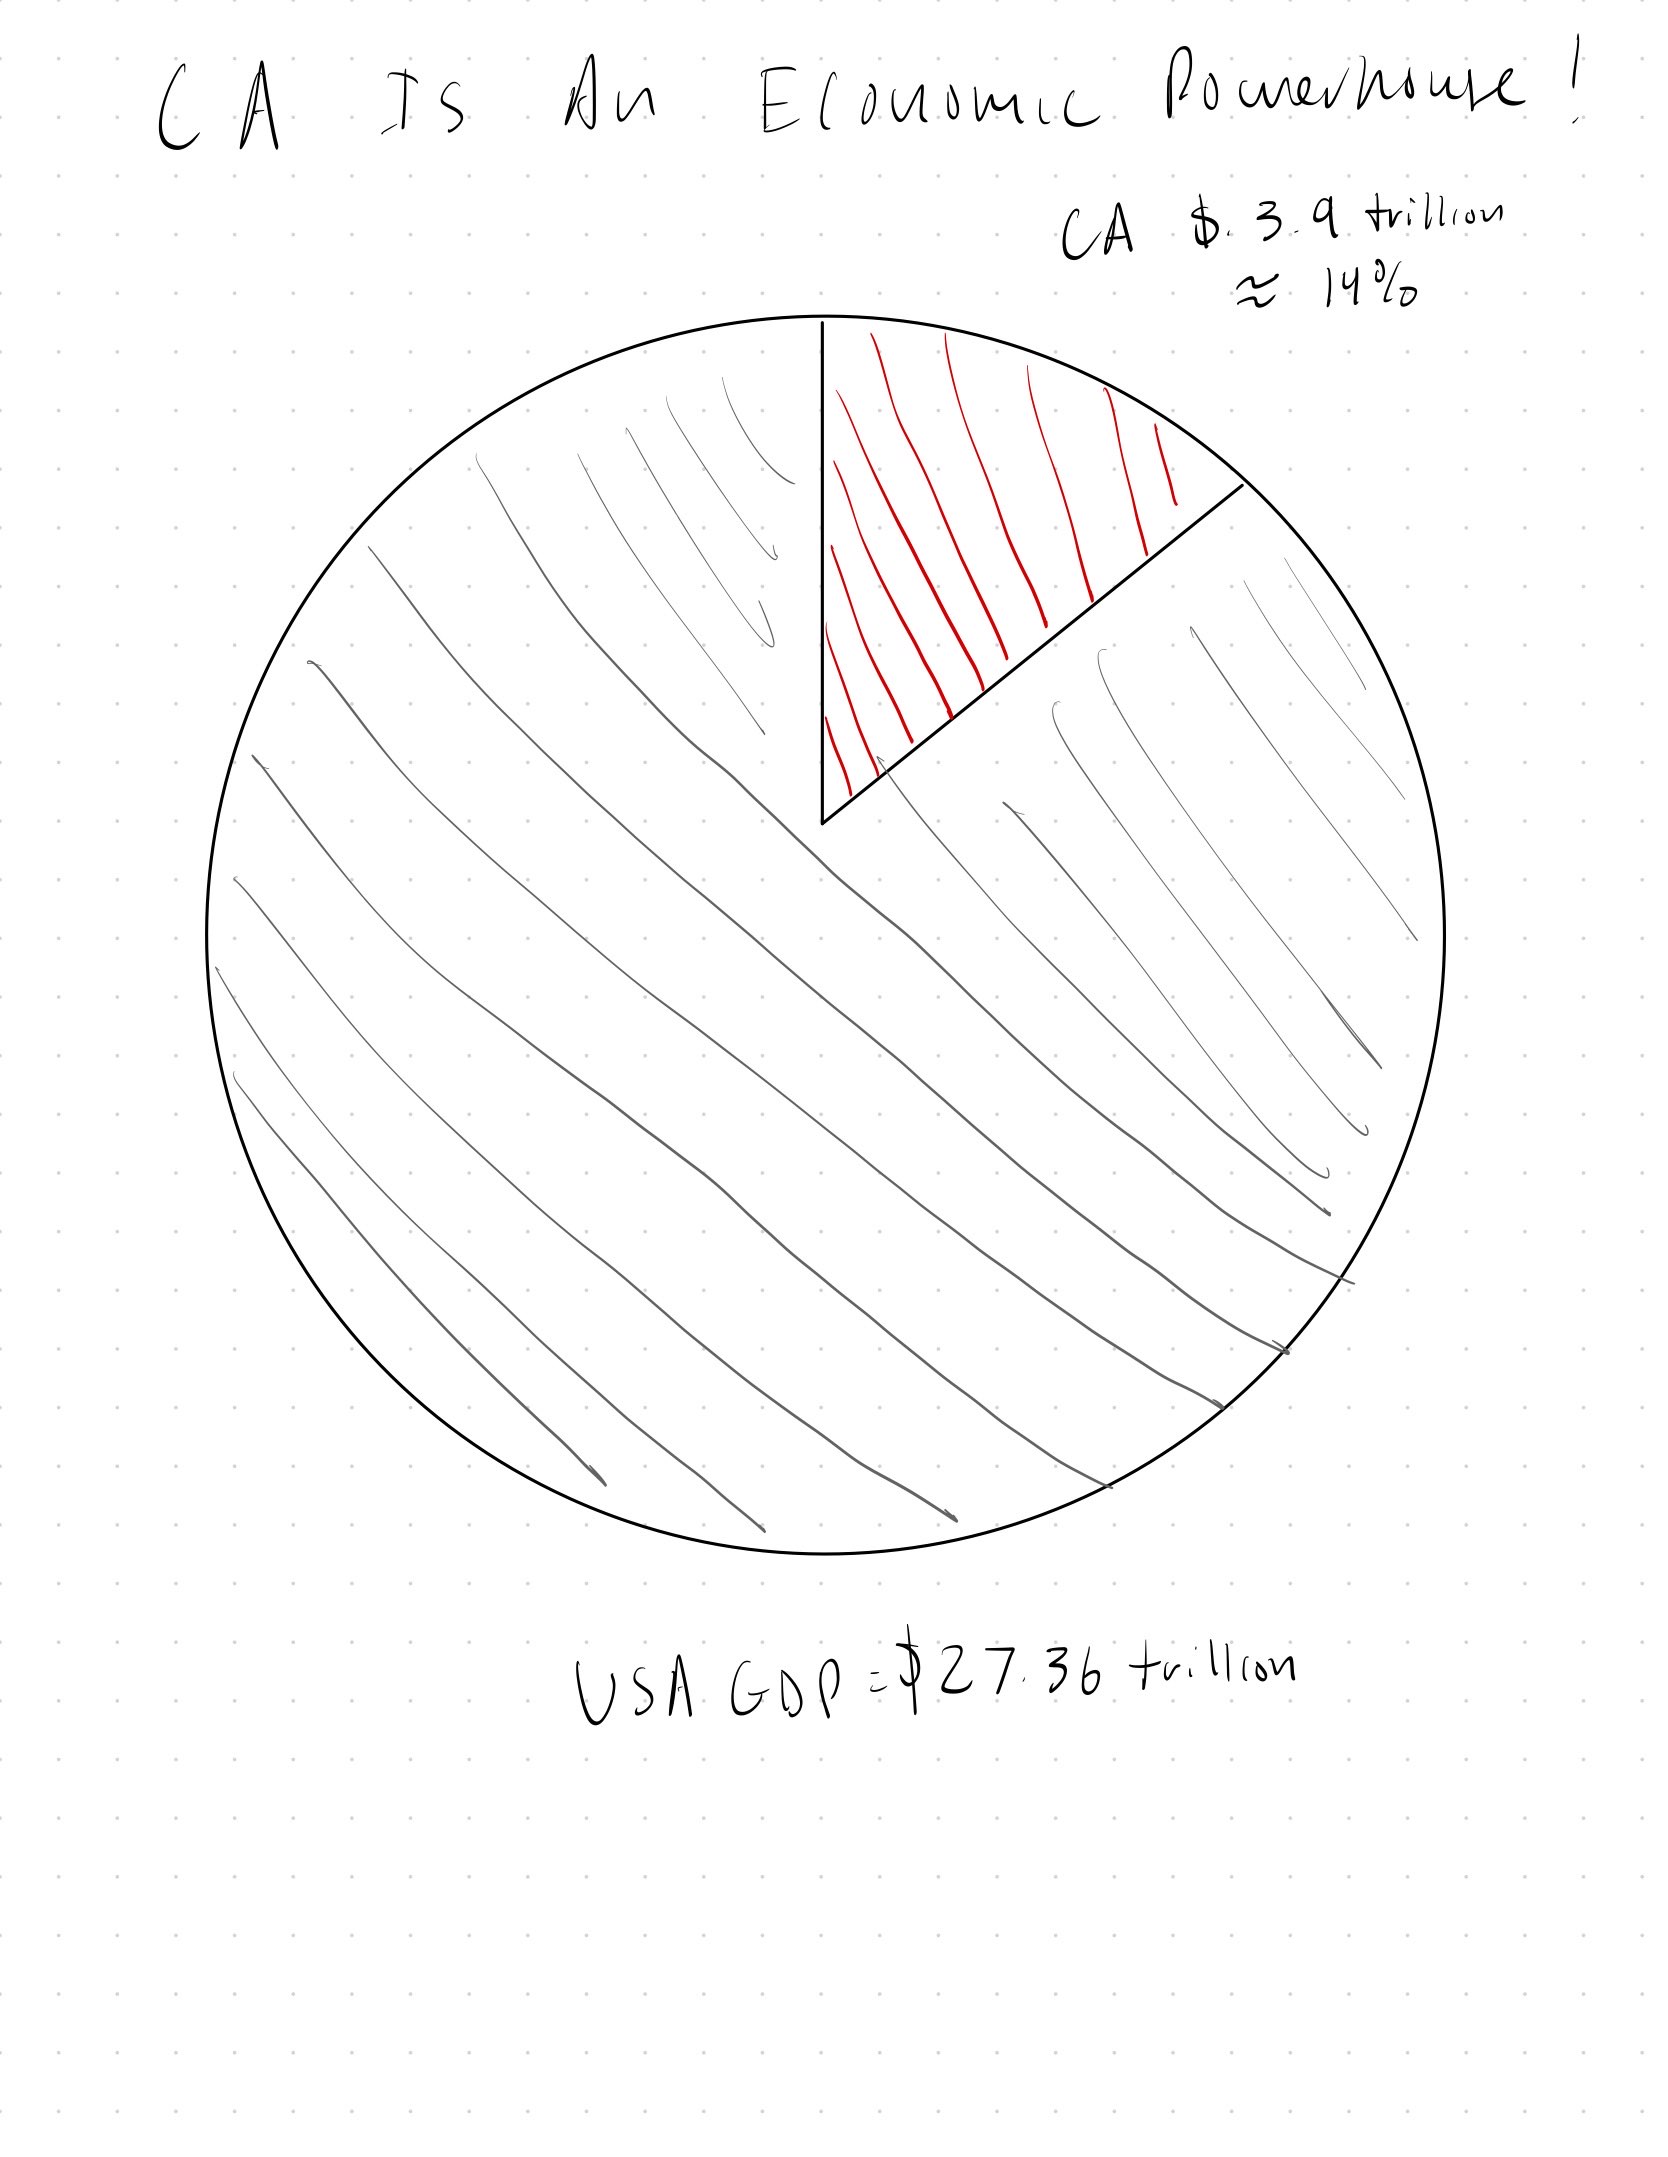 CA Is An Economic Powerhouse!
CA $.3.9 trillion
≈ 14%
USA GDP = $27.36 trillion